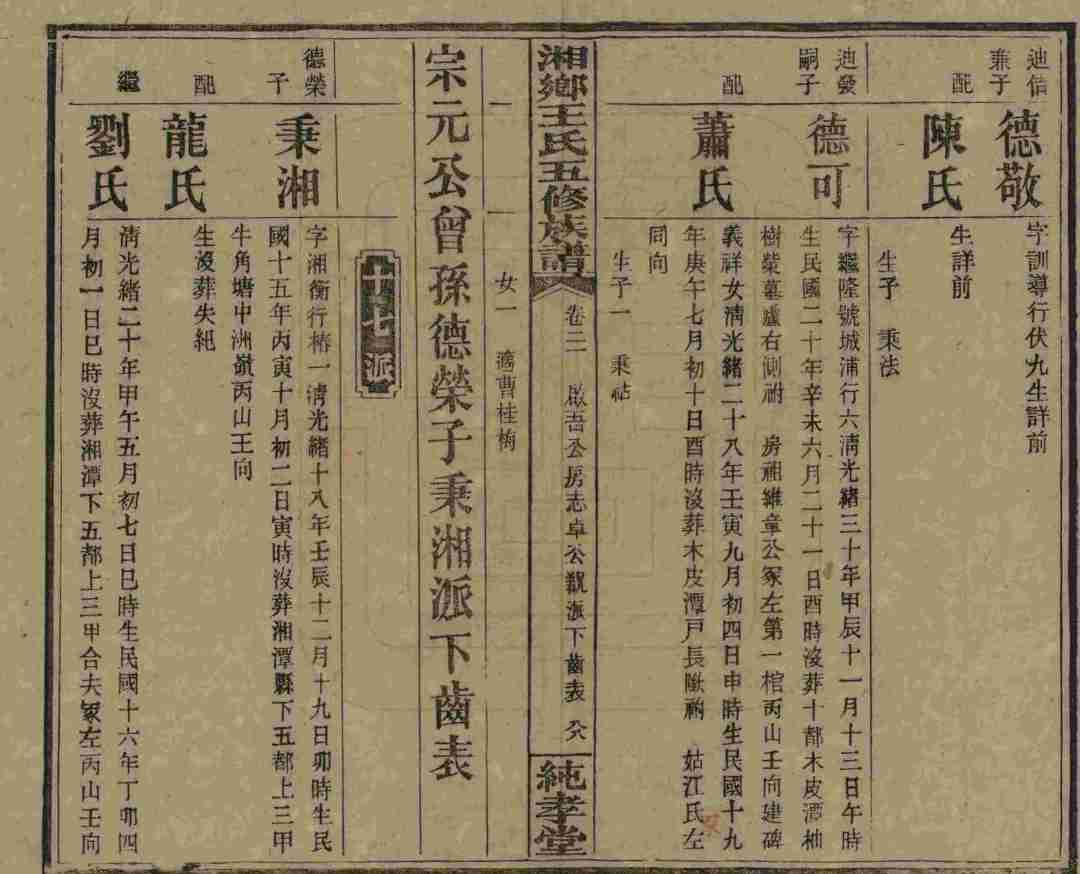 迪信
兼子
德敬
字訓導行伏九生詳前
配
陳氏
生詳前
生子 秉法
迪發
嗣子
德可
字繼隆號城浦行六淸光緒三十年甲辰十一月十三日午時
生民國二十年辛未六月二十一日酉時沒葬十都木皮潭柚
樹塋墓廬右側祔 房祖維章公冢左第一棺丙山壬向建碑
配
蕭氏
義祥女淸光緒二十八年壬寅九月初四日申時生民國十九
年庚午七月初十日酉時沒葬木皮潭戸長 祔 姑江氏左
同向
生子一 秉祜
湘鄉王氏五修族譜
卷三
啟吾公房志卓公 派下齒表
純孝堂
一
一
女一 適曹桂梅
宗元公曾孫德榮子秉湘派下齒表
派
德榮
子
秉湘
字湘衡行椿一淸光緒十八年壬辰十二月十九日卯時生民
國十五年丙寅十月初二日寅時沒葬湘潭縣下五都上三甲
牛角塘中洲嶺丙山壬向
配
龍氏
生沒葬失紀
繼
劉氏
淸光緒二十年甲午五月初七日巳時生民國十六年丁卯四
月初一日巳時沒葬湘潭下五都上三甲合夫冢左丙山壬向